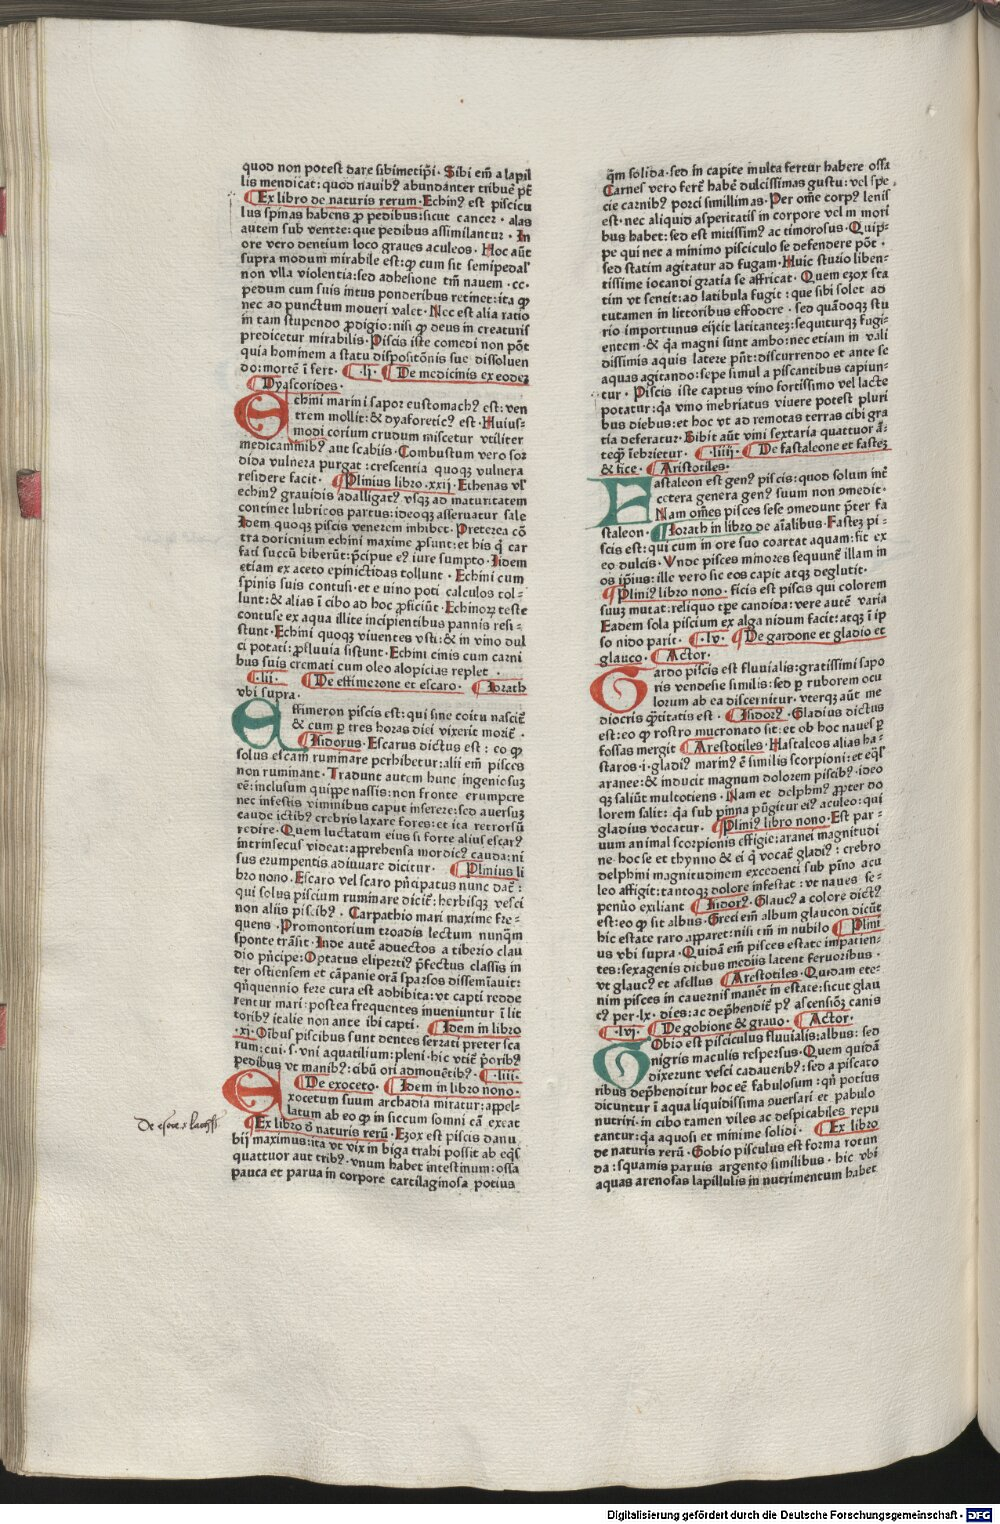 quod non potest dare sibimetip̄i. Sibi em̄ a lapil
lis mendicat: quod nauibꝰ abundanter tribuē pt̄
¶ Ex libro de naturis rerum. Echinꝰ est piscicu
lus spinas habens ꝓ pedibus: sicut cancer. alas
autem sub ventre: que pedibus assimilantur. In
ore vero dentium loco graues aculeos. Hoc aūt
supra modum mirabile est: ꝙ cum sit semipedal'
non vlla violentia: sed adhesione tm̄ nauem .cc.
pedum cum suis intus ponderibus retinet: ita ꝙ
nec ad punctum moueri valet. Nec est alia ratio
in tam stupendo ꝓdigio: nisi ꝙ deus in creaturis
predicetur mirabilis. Piscis iste comedi non pōt
quia hominem a statu dispositōnis sue dissoluen
do: mortē ĩfert. ¶ .lj. ¶ De medicinis ex eodez
¶ Dyascorides.
Echini marini sapor eustomachꝰ est: ven
trem mollit: & dyaforeticꝰ est. Huius-
modi corium crudum miscetur vtiliter
medicaminibꝰ aut scabiis. Combustum vero sor
dida vulnera purgat: crescentia quoqꝫ vulnera
residere facit. ¶ Plinius libro .xxij. Echenas vl'
echinꝰ grauidis adalligatꝰ vsqꝫ ad maturitatem
continet lubricos partus: ideoqꝫ asseruatur sale
Idem quoqꝫ piscis venerem inhibet. Preterea cō
tra doricnium echini maxime ꝓsunt: et his q̇ car
fati succū biberūt: p̄cipue eꝰ iure sumpto. Iidem
etiam ex aceto epinictidas tollunt. Echini cum
spinis suis contusi. et e uino poti calculos tol-
lunt: & alias ĩ cibo ad hoc ꝓficiūt. Echinoꝝ teste
contuse ex aqua illite incipientibus pannis resi-
stunt. Echini quoqꝫ viuentes vsti: & in vino dul
ci potati: ꝓfluuia sistunt. Echini cinis cum carni
bus suis cremati cum oleo alopicias replet.
¶ .lii. ¶ De effimerone et escaro. ¶ Iorath
vbi supra.
Affimeron piscis est: qui sine coitu nascit̄
& cum ꝑ tres horas diei vixerit morit̄.
¶ Isidorus. Escarus dictus est: eo ꝙ
solus escam ruminare perhibetur: alii em̄ pisces
non ruminant. Tradunt autem hunc ingeniosuꝫ
eē: inclusum quippe nassis: non fronte erumpere
nec infestis viminibus caput inserere: sed auersuꝫ
caude ictibꝰ crebris laxare fores: et ita retrorsū
redire. Quem luctatum eius si forte alius escarꝰ
intrinsecus videat: apprehensa mordicꝰ cauda: ni
sus erumpentis adiuuare dicitur. ¶ Plinius li
bro nono. Escaro vel scaro pn̄cipatus nunc dat̄:
qui solus piscium ruminare dicit̄: herbisqꝫ vesci
non aliis piscibꝰ. Carpathio mari maxime fre-
quens. Promontorium troadis lectum nunq̄m
sponte trāsit. Inde autē aduectos a tiberio clau
dio pn̄cipe: Optatus elipertiꝰ p̄fectus classis in
ter ostiensem et cāpanie orā sparsos disseminauit:
qn̄quennio fere cura est adhibita: vt capti redde
rentur mari: postea frequentes inueniuntur ĩ lit
toribꝰ italie non ante ibi capti. ¶ Idem in libro
.xi. Oībus piscibus sunt dentes serrati preter sca
rum: cui .s. vni aquatilium: pleni. hic vtit̄ p̄oribꝰ
pedibus vt manibꝰ: cibū ori admouētibꝰ. ¶ .liii.
¶ De exoceto. ¶ Idem in libro nono.
Exocetum suum archadia miratur: appel-
latum ab eo ꝙ in siccum somni cā exeat
¶ Ex libro de naturis rerū. Ezox est piscis danu
bij maximus: ita vt vix in biga trahi possit ab eq̇s
quattuor aut tribꝰ. vnum habet intestinum: ossa
pauca et parua in corpore cartilaginosa potius
De esoce & lachss
q̄m solida. sed in capite multa fertur habere ossa
Carnes vero ferē habē dulcissimas gustu: vel spe
cie carnibꝰ porci simillimas. Per om̄e corpꝰ lenis
est. nec aliquid asperitatis in corpore vel in mori
bus habet: sed est mitissimꝰ ac timorosus. Quip-
pe qui nec a minimo pisciculo se defendere pōt.
sed statim agitatur ad fugam. Huic sturio liben-
tissime iocandi gratia se affricat. Quem ezox sta
tim vt sentit: ad latibula fugit: que sibi solet ad
tutamen in littoribus effodere. sed quādoqꝫ stu
rio importunus eijcit latitantez: sequiturqꝫ fugi-
entem. & q̄a magni sunt ambo: nec etiam in vali
dissimis aquis latere pn̄t: discurrendo et ante se
aquas agitando: sepe simul a piscantibus capiun-
tur. Piscis iste captus vino fortissimo vel lacte
potatur: q̄a vino inebriatus viuere potest pluri
bus diebus: et hoc vt ad remotas terras cibi gra
tia deferatur. Bibit aūt vini sextaria quattuor ā-
teqꝫ īebrietur. ¶ .liiij. ¶ De fastaleone et fastez
& fice. ¶ Aristotiles.
Fastaleon est genꝰ piscis: quod solum int̄
cetera genera genꝰ suum non ꝯmedit.
Nam om̄es pisces sese ꝯmedunt p̄ter fa
staleon. ¶ Iorath in libro de aīalibus. Fastez pi-
scis est: qui cum in ore suo coartat aquam: fit ex
eo dulcis. Vnde pisces minores sequunt̄ illam in
os ip̄ius: ille vero sic eos capit atqꝫ deglutit.
¶ Pliniꝰ libro nono. ficis est piscis qui colorem
suuꝫ mutat: reliquo tp̄e candida: vere autē varia
Eadem sola piscium ex alga nidum facit: atqꝫ ĩ ip
so nido parit. ¶ .lv. ¶ De gardone et gladio et
glauco. ¶ Actor.
Gardo piscis est fluuialis: gratissimi sapo
ris vendesie similis: sed ꝑ ruborem ocu
lorum ab ea discernitur. vterqꝫ aūt me
diocris q̄titatis est. ¶ Isidorꝰ. Gladius dictus
est: eo ꝙ rostro mucronato sit: et ob hoc naues ꝑ
fossas mergit ¶ Arestotiles. Hastaleos alias ha-
staros .i. gladiꝰ marinꝰ ē similis scorpioni: et eq̇l'
aranee: & inducit magnum dolorem piscibꝰ. ideo
qꝫ saliūt multotiens. Nam et delphinꝰ ꝓpter do
lorem salit: q̄a sub pinna pūgitur eiꝰ aculeo: qui
gladius vocatur. ¶ Pliniꝰ libro nono. Est par-
uum animal scorpionis effigie: aranei magnitudi
ne. hoc se et thynno & ei q̇ vocat̄ gladiꝰ: crebro
delphini magnitudinem excedenti sub pīna acu
leo affigit: tantoqꝫ dolore infestat: vt naues se-
penūo exiliant ¶ Isidorꝰ. Glaucꝰ a colore dictꝰ
est: eo ꝙ sit albus. Greci em̄ album glaucon dicūt
hic estate raro apparet: nisi tm̄ in nubilo ¶ Plini
us vbi supra. Quidā em̄ pisces estate impatien-
tes: sexagenis diebus mediis latent feruoribus.
vt glaucꝰ et asellus ¶ Arestotiles. Quidam ete-
nim pisces in cauernis manēt in estate: sicut glau
cꝰ per .lx. dies: ac dep̄hendit̄ pꝰ ascensiōꝫ canis
¶ .lvj. ¶ De gobione & grauo. ¶ Actor.
Gobio est pisciculus fluuialis: albus: sed
nigris maculis respersus. Quem quidā
dixerunt vesci cadaueribꝰ: sed a piscato
ribus dep̄henditur hoc eē fabulosum: qn̄ potius
dicuntur ĩ aqua liquidissima ꝯuersari et pabulo
nutriri. in cibo tamen viles ac despicabiles repu
tantur: q̄a aquosi et minime solidi. ¶ Ex libro
de naturis rerū. Gobio pisculus est forma rotun
da: squamis paruis argento similibus. hic vbi
aquas arenosas lapillulis in nutrimentum habet
Digitalisierung gefördert durch die Deutsche Forschungsgemeinschaft - DFG